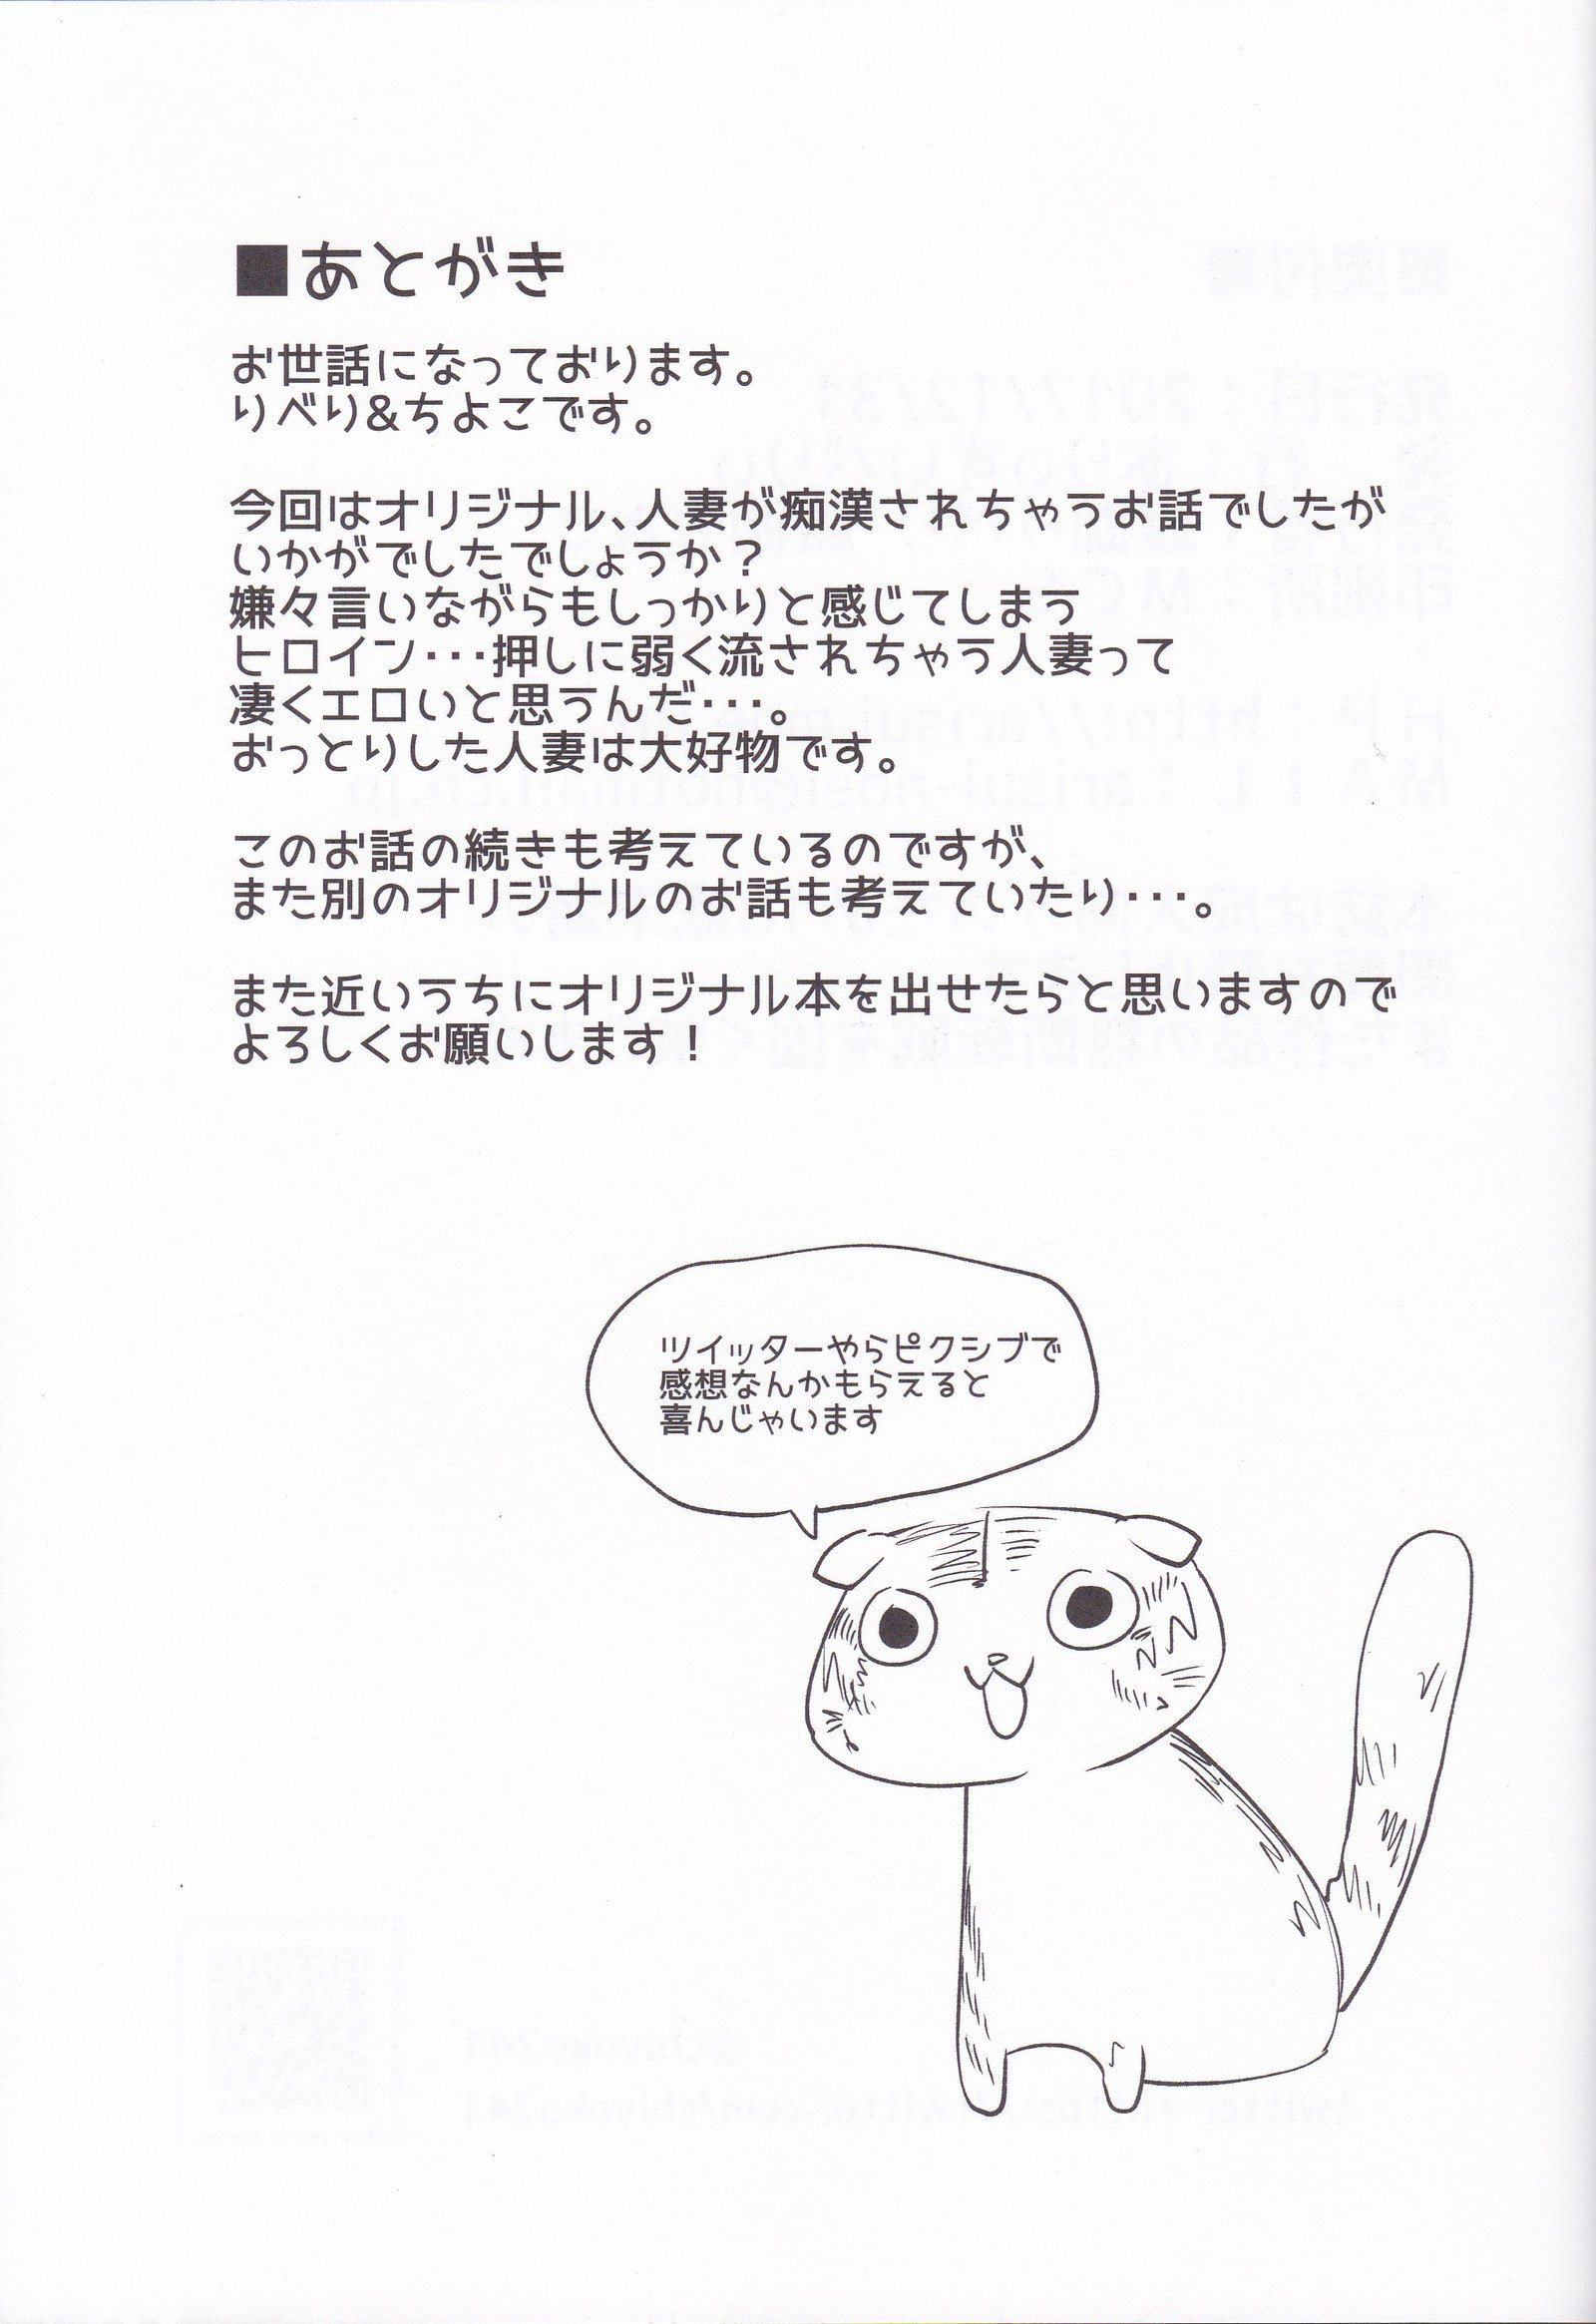 ■あとがき
お世話になっております。
りべり&ちよこです。
今回はオリジナル、人妻が痴漢されちゃうお話でしたが
いかがでしたでしょうか？
嫌々言いながらもしっかりと感じてしまう
ヒロイン･･･押しに弱く流されちゃう人妻って
凄くエロいと思うんだ･･･。
おっとりした人妻は大好物です。
このお話の続きも考えているのですが、
また別のオリジナルのお話も考えていたり･･･。
また近いうちにオリジナル本を出せたらと思いますので
よろしくお願いします！
ツイッターやらピクシブで
感想なんかもらえると
喜んじゃいます